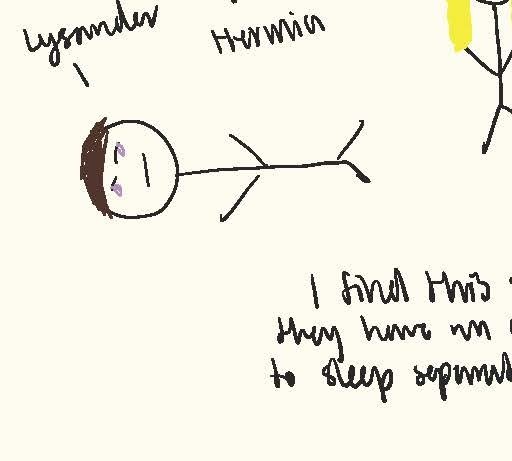 Lysander
Hermia
I find this
they have an
to sleep